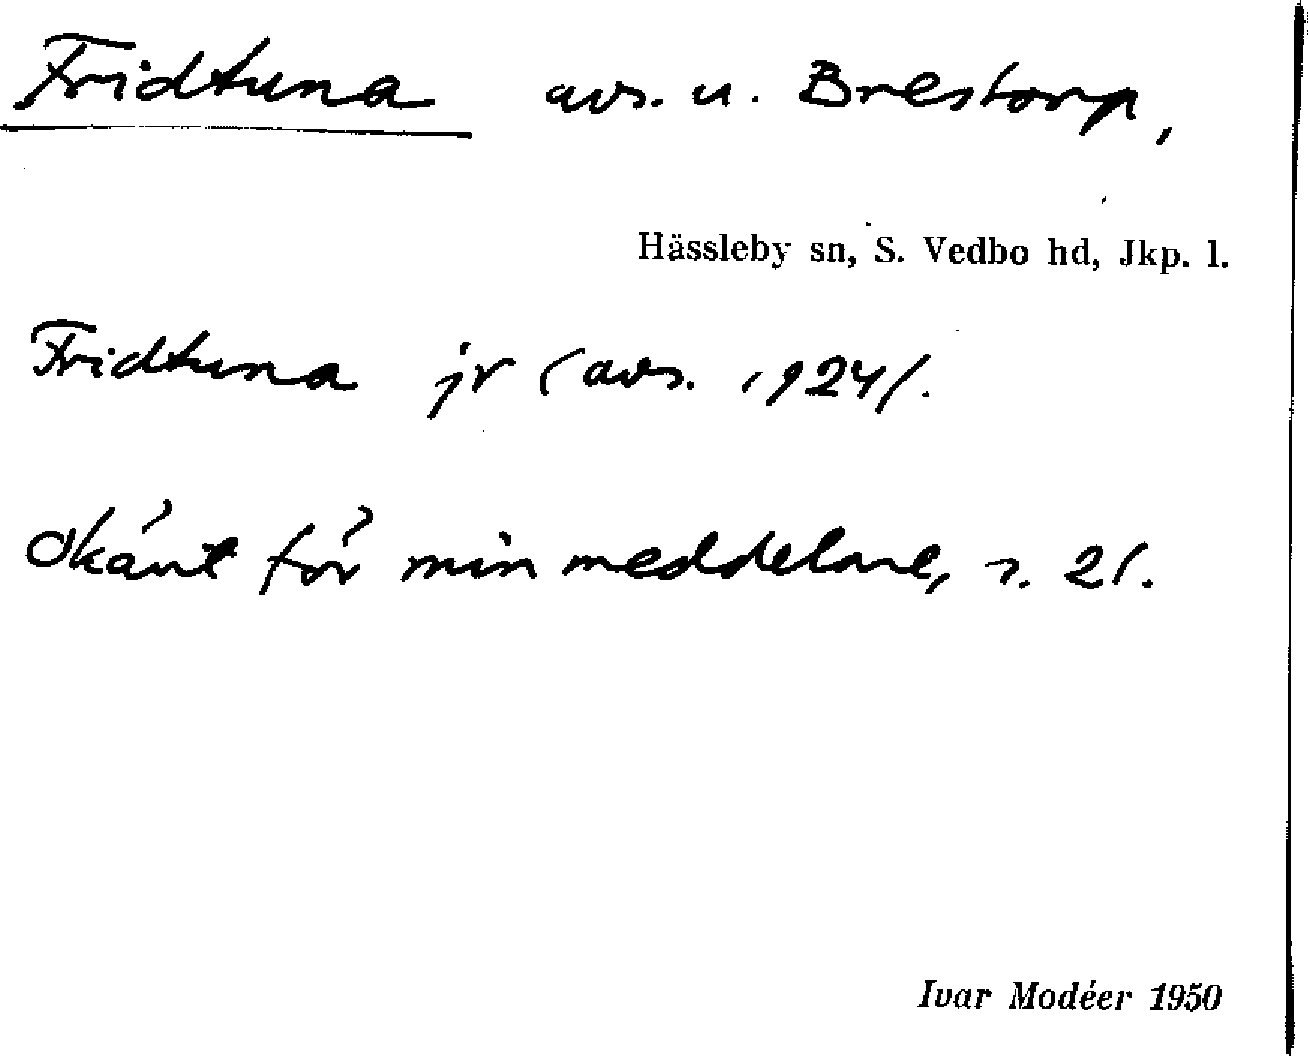 Fridtuna avs. u. Brestorp,
Hässleby sn, S. Vedbo hd, Jkp. l.
Fridtuna jr (avs. 1924).
Okänt för min meddelare, s. 21.
Ivar Modéer 1950